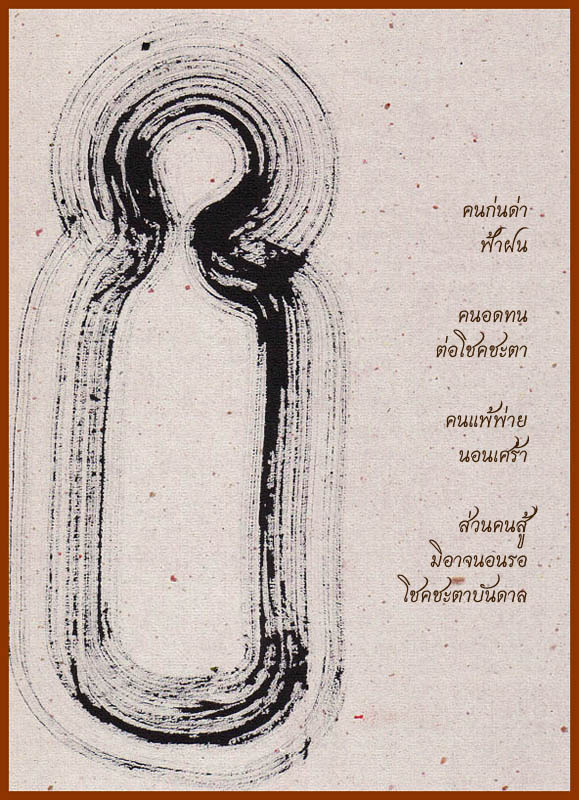 คนก่นด่า
ฟ้าฝน
คนอดทน
ต่อโชคชะตา
คนแพ้พ่าย
นอนเศร้า
ส่วนคนสู้
มิอาจนอนรอ
โชคชะตาบันดาล